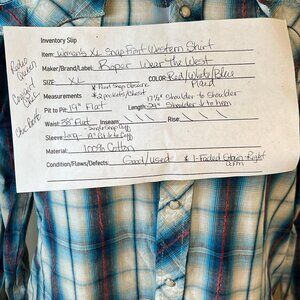 Inventory Slip
Item: Women's XL Snap Front Western Shirt
Maker/Brand/Label: Roper Wear The West
SIZE: XL COLOR: Red/White/Blue
Plaid
* Pearl Snap Closure
Measurements * 2 pockets/Chest 17½" Shoulder to Shoulder
Pit to Pit: 19" Flat Length: 24" Shoulder to Hem
Waist: 38" Flat Inseam: Rise:
- Single Snap Cuff
Sleeve Long - " Pit to Cuff
Material: 100% Cotton
Condition/Flaws/Defects: Good/used * 1-Faded Stain-Right
Rodeo
Queen
Cowgirl
Chic